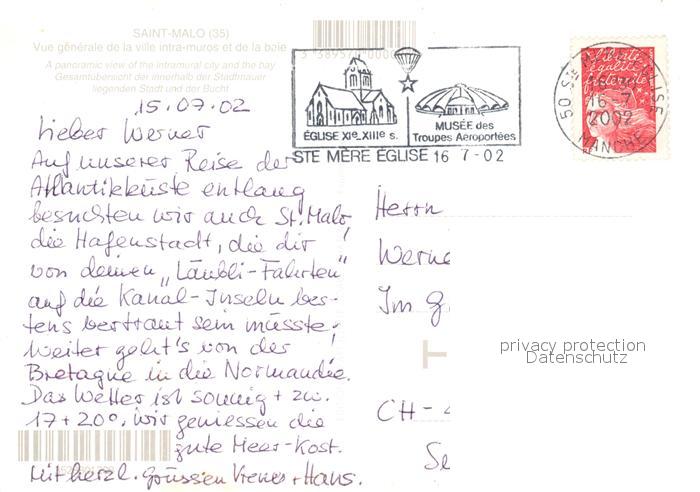 SAINT-MALO (35)
Vue générale de la ville intra-muros et de la baie
A panoramic view of the intramural city and the bay
Gesamtübersicht der innerhalb der Stadtmauer
liegenden Stadt und der Bucht
15.07.02
Lieber Werner
Auf unserer Reise der
Atlantikküste entlang
besuchten wir auch St. Malo,
die Hafenstadt, die dir
von deinen „Läubli-Fahrten"
auf die Kanal-Inseln bes-
tens vertraut sein müsste!
Weiter geht's von der
Bretagne in die Normandie.
Das Wetter ist sonnig + zw.
17 + 20°, wir geniessen die
gute Meer-Kost.
Mit herzl. Grüssen + Hans.
ÉGLISE XIe-XIIIe s.
MUSÉE des
Troupes Aéroportées
STE MÈRE ÉGLISE 16 7-02
liberté
égalité
fraternité
16-7
2002
MANCHE
Herrn
Werne
Im G
CH-
Se
privacy protection
Datenschutz